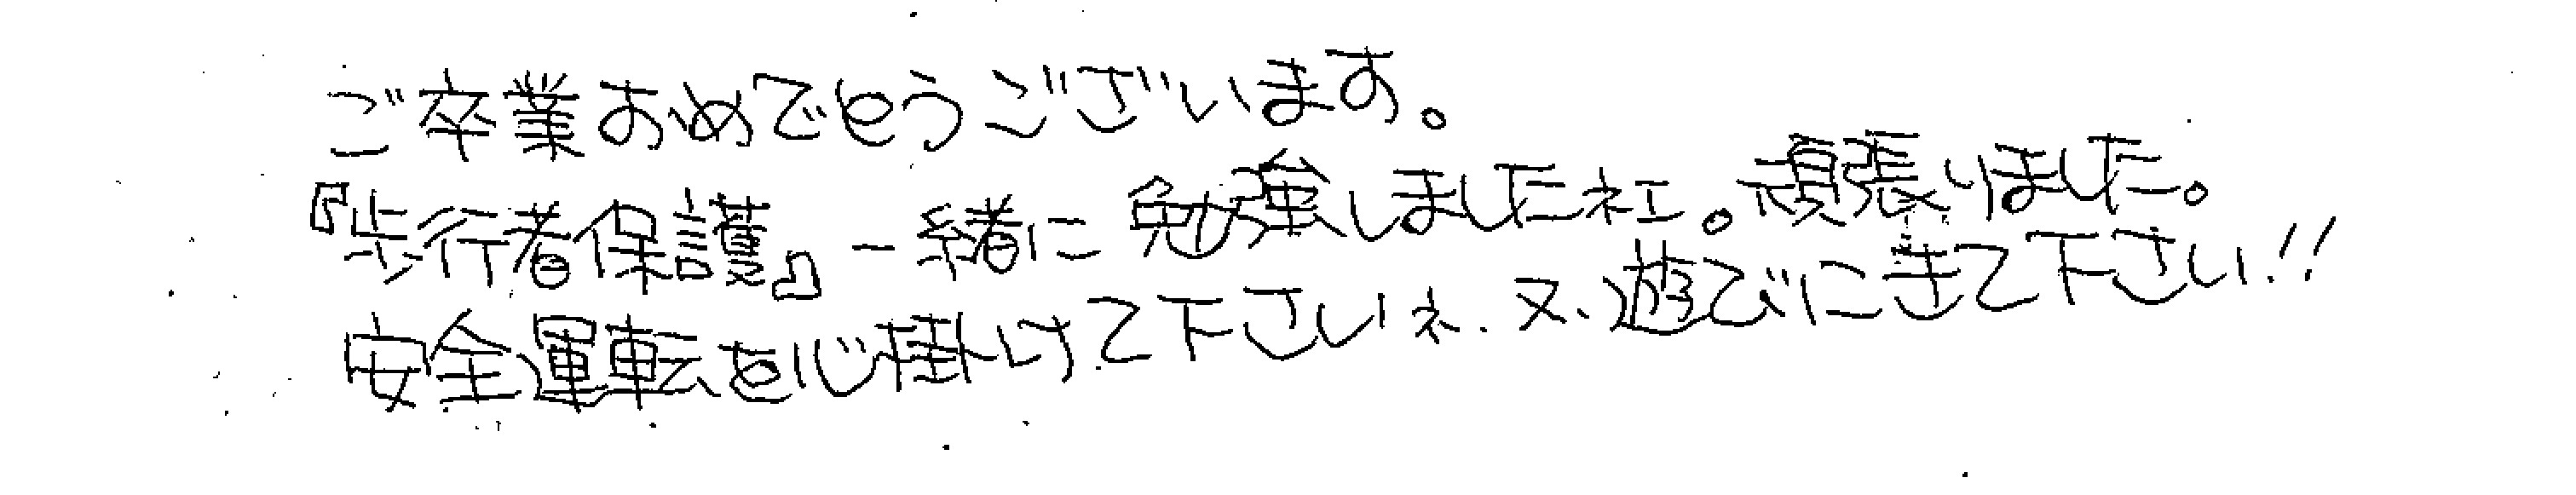 ご卒業おめでとうございます。
『歩行者保護』一緒に勉強しましたネエ。頑張りました。
安全運転を心掛けて下さいネ.又、遊びにきて下さい!!